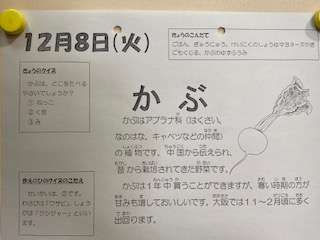 12月8日(火)
きょうのこんだて
ごはん、ぎゅうにゅう、けいにくのしょうゆマヨネーズやき
ごもくじる、かぶのゆずふうみ
きょうのクイズ
かぶは、どこをたべる
やさいでしょうか?
① ねっこ
② くき
③ み
かぶ
かぶはアブラナ科(はくさい、
なのはな、キャベツなどの仲間)
の植物です。中国から伝えられ、
昔から栽培されてきた野菜です。
かぶは1年中買うことができますが、寒い時期の方が
甘みも増しておいしいです。大阪では11~2月頃に多く
出回ります。
せいかいは、②です。
わさびは「ワサビ」、しょう
がは「ジンジャー」といい
ます。